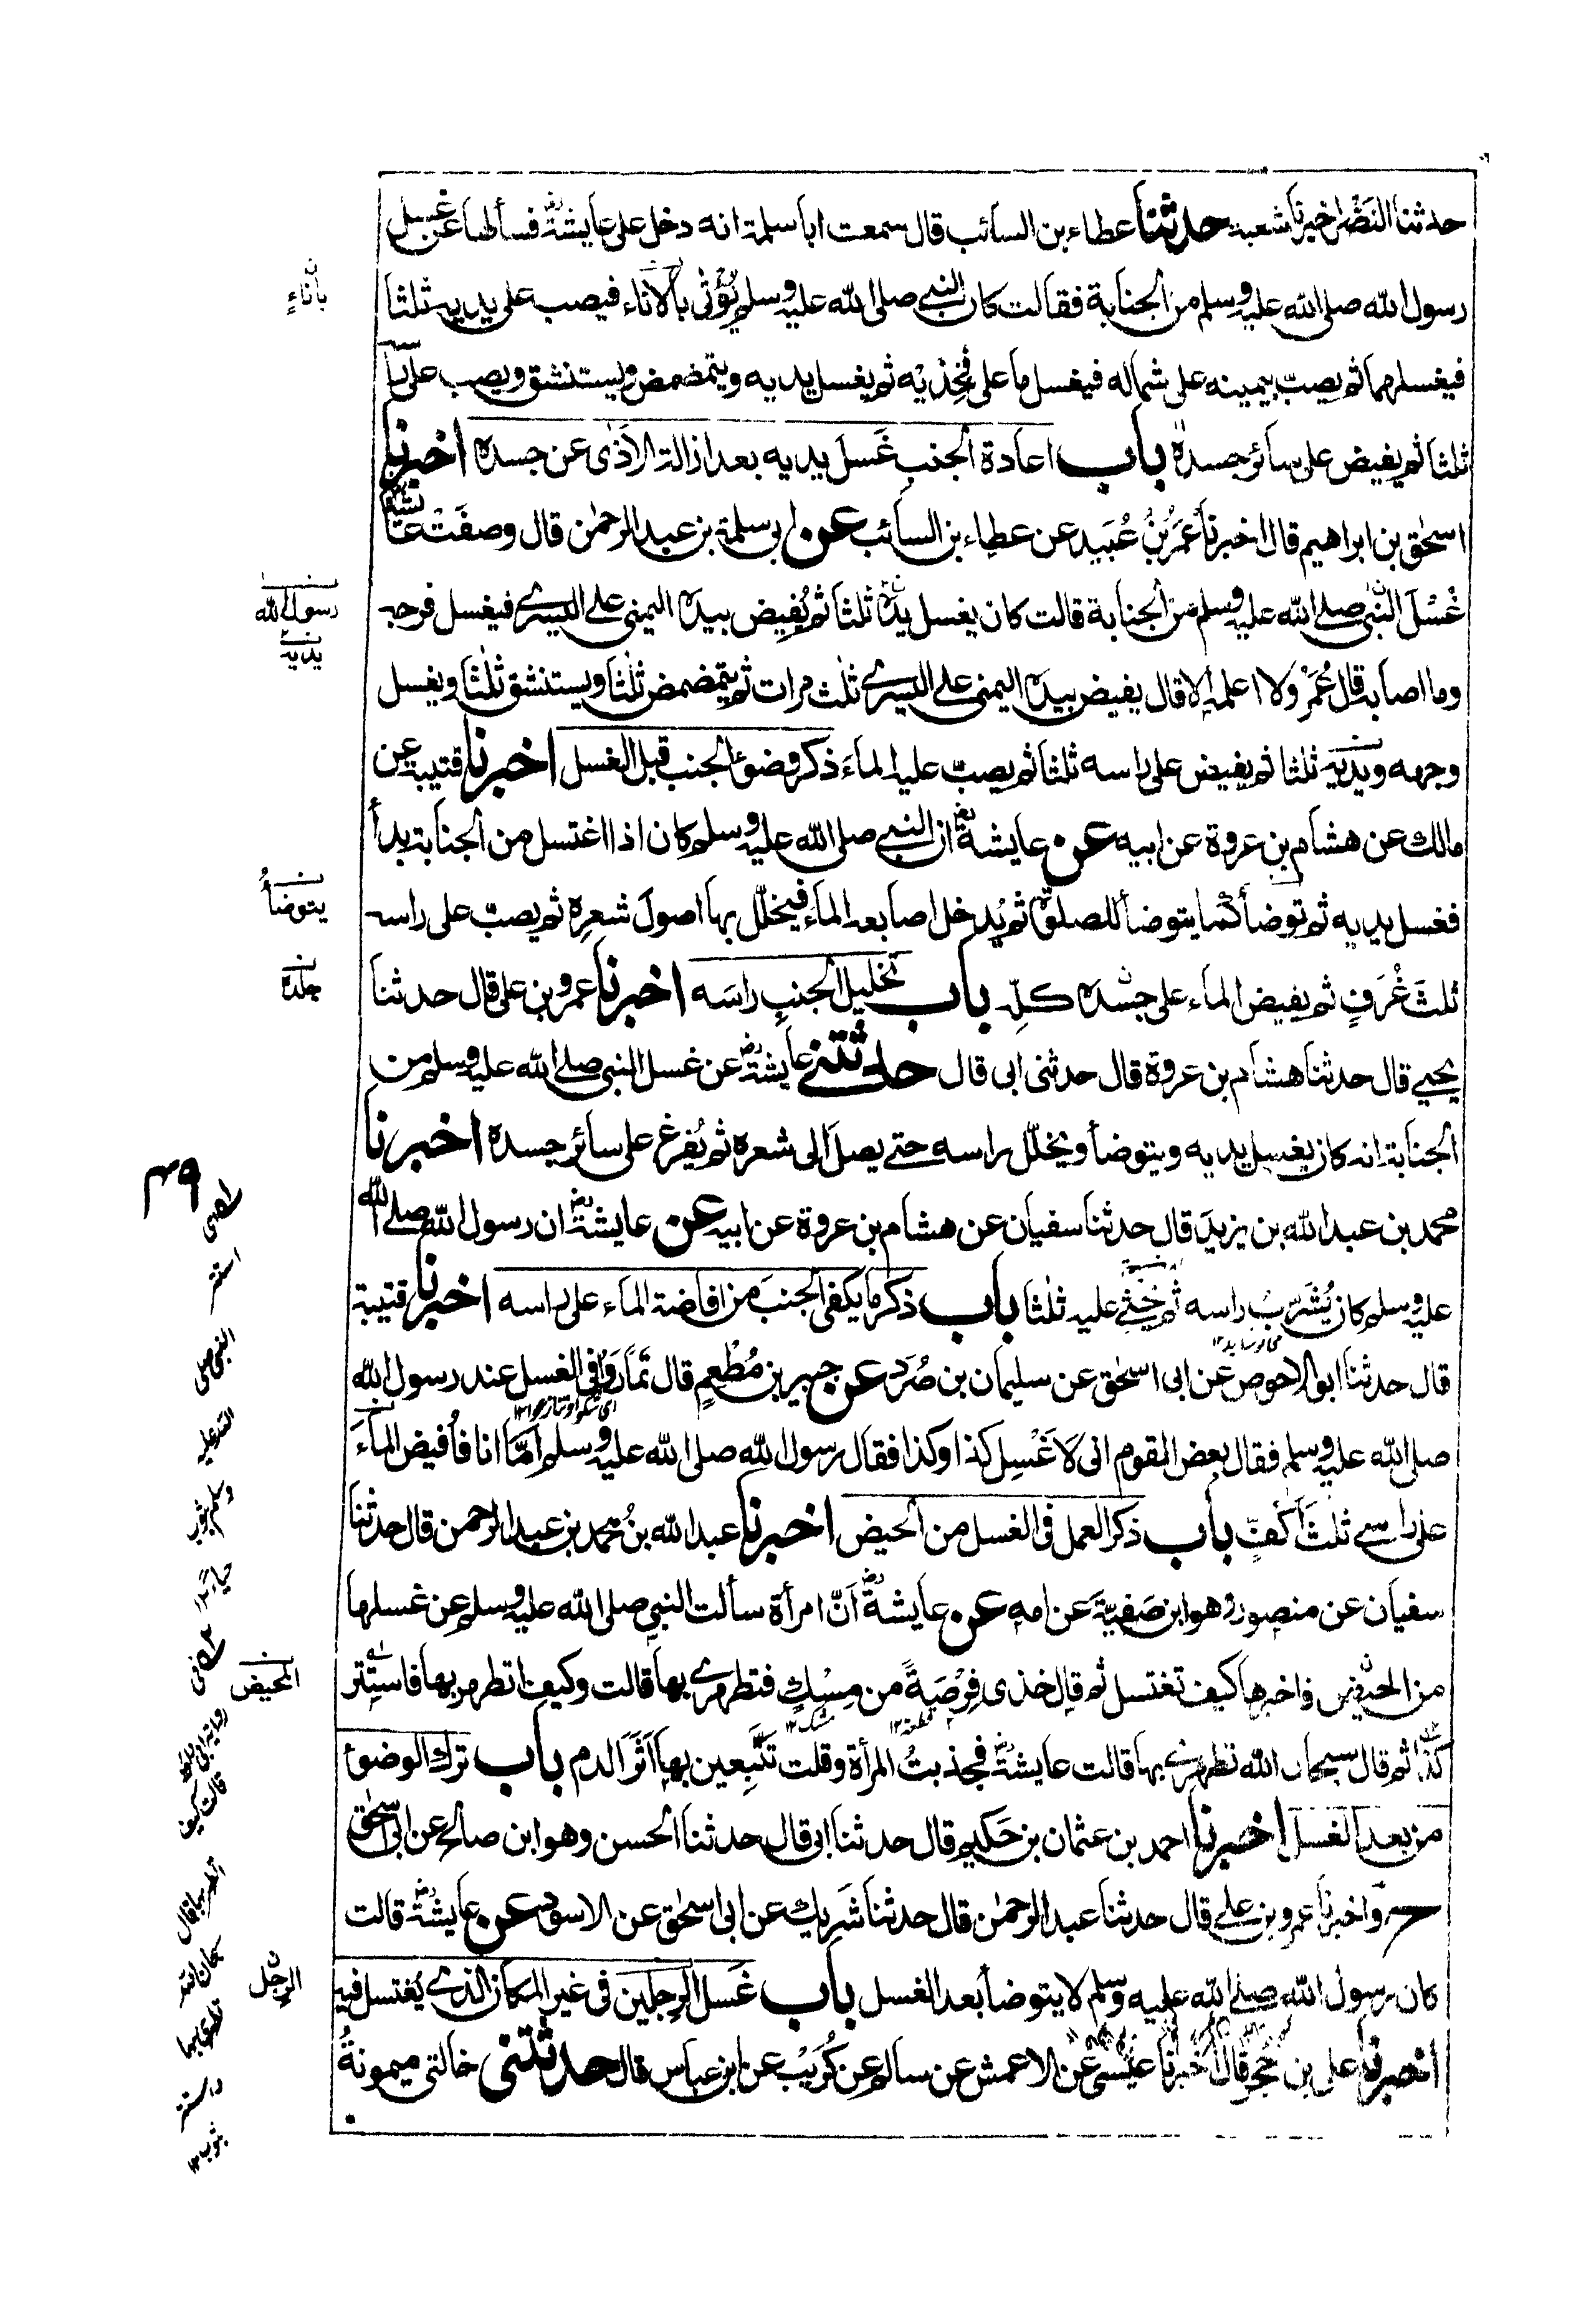 حدثنا النَضْر اخبرنا شعبة حدثنا عطاء بن السائب قال سمعت ابا سلمة انه دخل على عايشةؓ فسألها عن غسل
رسول الله صلى الله عليه وسلم من الجنابة فقالت كان النبي صلى الله عليه وسلم يُؤْتٰى بالاناء فيصب على يديه ثلثا
فيغسلهما ثم يصبّ بيمينه على شماله فيغسل ما على فخِذيْه ثم يغسل يديه ويتمضمض ويستنشق ويصب على را
ثلثا ثم يفيض على سائر جسده باب اعادة الجنب غَسل يديه بعد ازالة الاَذٰى عن جسده اخبرنا
اسحٰق بن ابراهيم قال اخبرنا عُمَرُ بنُ عُبَيد عن عطاء بن السائب عن ابى سلمة بن عبد الرحمٰن قال وصفَتْ عائشة
غُسْلَ النبى صلى الله عليه وسلم من الجنابة قالت كان يغسل يده ثلثا ثم يُفِيض بيده اليمنى على اليسرى فيغسل فرجه
وما اصابه قال عُمَرُ ولا اعلمه الا قال يفيض بيده اليمنى على اليسرى ثلٰث مرات ثم يتمضمض ثلٰثا ويستنشق ثلٰثا ويغسل
وجهه ويديه ثلٰثا ثم يفيض على راسه ثلٰثا ثم يصبّ عليه الماءَ ذكر وضوء الجنب قبل الغسل اخبرنا قتيبة عن
مالك عن هشام بن عروة عن ابيه عن عايشةؓ ان النبي صلى الله عليه وسلم كان اذا اغتسل من الجنابة بدأ
فغسل يديه ثم توضأ كما يتوضأ للصلوة ثم يُدخل اصابعه الماءَ فيخلّل بها اصولَ شعرِه ثم يصبّ على راسه
ثلٰثَ غُرَفٍ ثم يفيض الماء على جسده كلِّه باب تخليل الجنبِ راسَه اخبرنا عمرو بن على قال حدثنا
يحيى قال حدثنا هشام بن عروة قال حدثنى ابى قال حدثتنى عايشةؓ عن غسل النبى صلى الله عليه وسلم من
الجنابة انه كان يغسل يديه ويتوضأ ويخلّل راسه حتى يصل الى شعره ثم يُفرِغ على سائر جسده اخبرنا
محمد بن عبد الله بن يزيد قال حدثنا سفيان عن هشام بن عروة عن ابيه عن عايشةؓ ان رسول الله صلى الله
عليه وسلم كان يُشَرِّبُ راسه ثم يحثى عليه ثلٰثا باب ذكر ما يكفى الجنبَ من افاضة الماء على راسه اخبرنا قتيبة
قال حدثنا ابو الاحوص عن ابى اسحٰق عن سليمان بن صُرَد عن جبير بن مُطْعِم قال تَمَارَوْا فى الغسل عند رسول الله
صلى الله عليه وسلم فقال بعض القوم انى لاَغْسِل كذا وكذا فقال رسول الله صلى الله عليه وسلم اَمّا انا فاُفيض الماءَ
على راسى ثلٰثَ اَكُفٍّ باب ذكر العمل فى الغسل من الحيض اخبرنا عبد الله بنُ محمد بن عبد الرحمن قال حدثنا
سفيان عن منصور وهو ابن صَفيّةَ عن امه عن عايشةؓ اَنّ امرأة سألت النبى صلى الله عليه وسلم عن غسلها
من الحيض فاخبرها كيف تغتسل ثم قال خذى فِرْصَةً من مِسْكٍ فتطهرى بها قالت وكيف اتطهر بها فاستتر
كذا ثم قال سبحان الله تطهرى بها قالت عايشةؓ فجذبتُ المرأة وقلت تتَّبِعين بها اَثَرَ الدم باب ترك الوضوء
من بعد الغسل اخبرنا احمد بن عثمان بن حَكيم قال حدثنا ابى قال حدثنا الحسن وهو ابن صالح عن ابى اسحٰق
ح واخبرنا عمرو بن على قال حدثنا عبد الرحمٰن قال حدثنا شَريك عن ابى اسحٰق عن الاسود عن عايشةؓ قالت
كان رسول الله صلى الله عليه وسلم لا يتوضأ بعد الغسل باب غَسل الرجلين فى غير المكان الذى يَغتسل فيه
اخبرنا على بن حُجر قال اخبرنا عيسٰى عن الاعمش عن سالم عن كُرَيْب عن ابن عباس قال حدثتنى خالتى ميمونةُ
باناءٍ
رسول الله
يديه
يتوضأُ
جلده
المحيض
الرِجل
٤٩